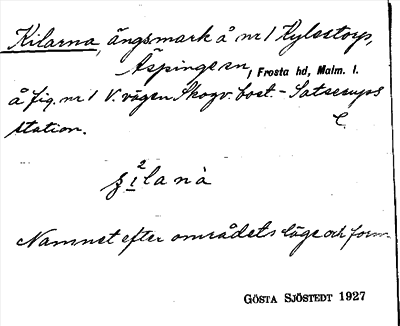 Kilarna, ängsmark å nr 1 Kylestorp,
Äspinge sn, Frosta hd, Malm. l.
å fig. nr 1 V. vägen Skogv. bost. - Satserups
station.
ʒ²ı̱lanà
Namnet efter områdets läge och form
GÖSTA SJÖSTEDT 1927